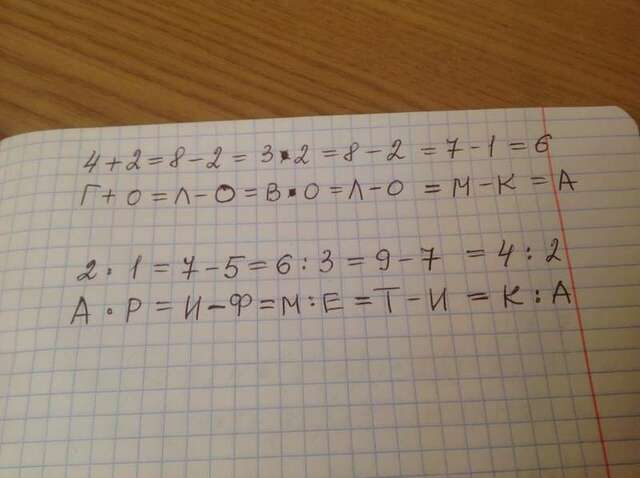 4 + 2 = 8 - 2 = 3 • 2 = 8 - 2 = 7 - 1 = 6
Г + О = Л - О = В • О = Л - О = М - К = А
2 • 1 = 7 - 5 = 6 : 3 = 9 - 7 = 4 : 2
А • Р = И - Ф = М : Е = Т - И = К : А